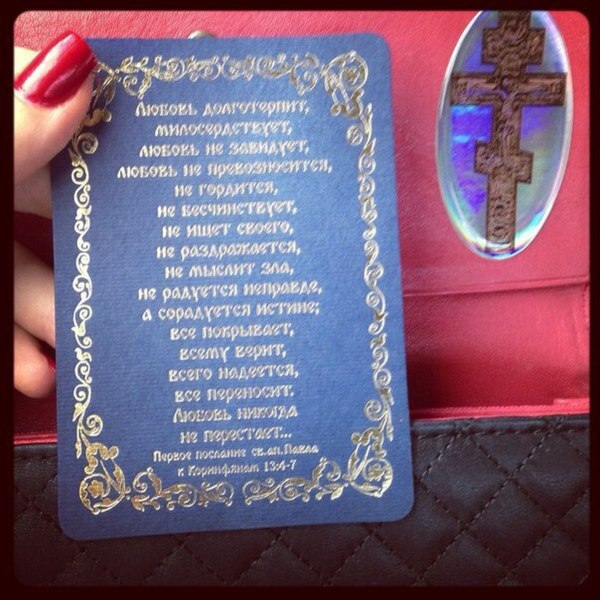 Любовь долготерпит,
милосердствует,
любовь не завидует,
любовь не превозносится,
не гордится,
не бесчинствует,
не ищет своего,
не раздражается,
не мыслит зла,
не радуется неправде,
а сорадуется истине;
все покрывает,
всему верит,
всего надеется,
все переносит.
Любовь никогда
не перестает...
Первое послание св.ап.Павла
к Коринфянам 13:4-7